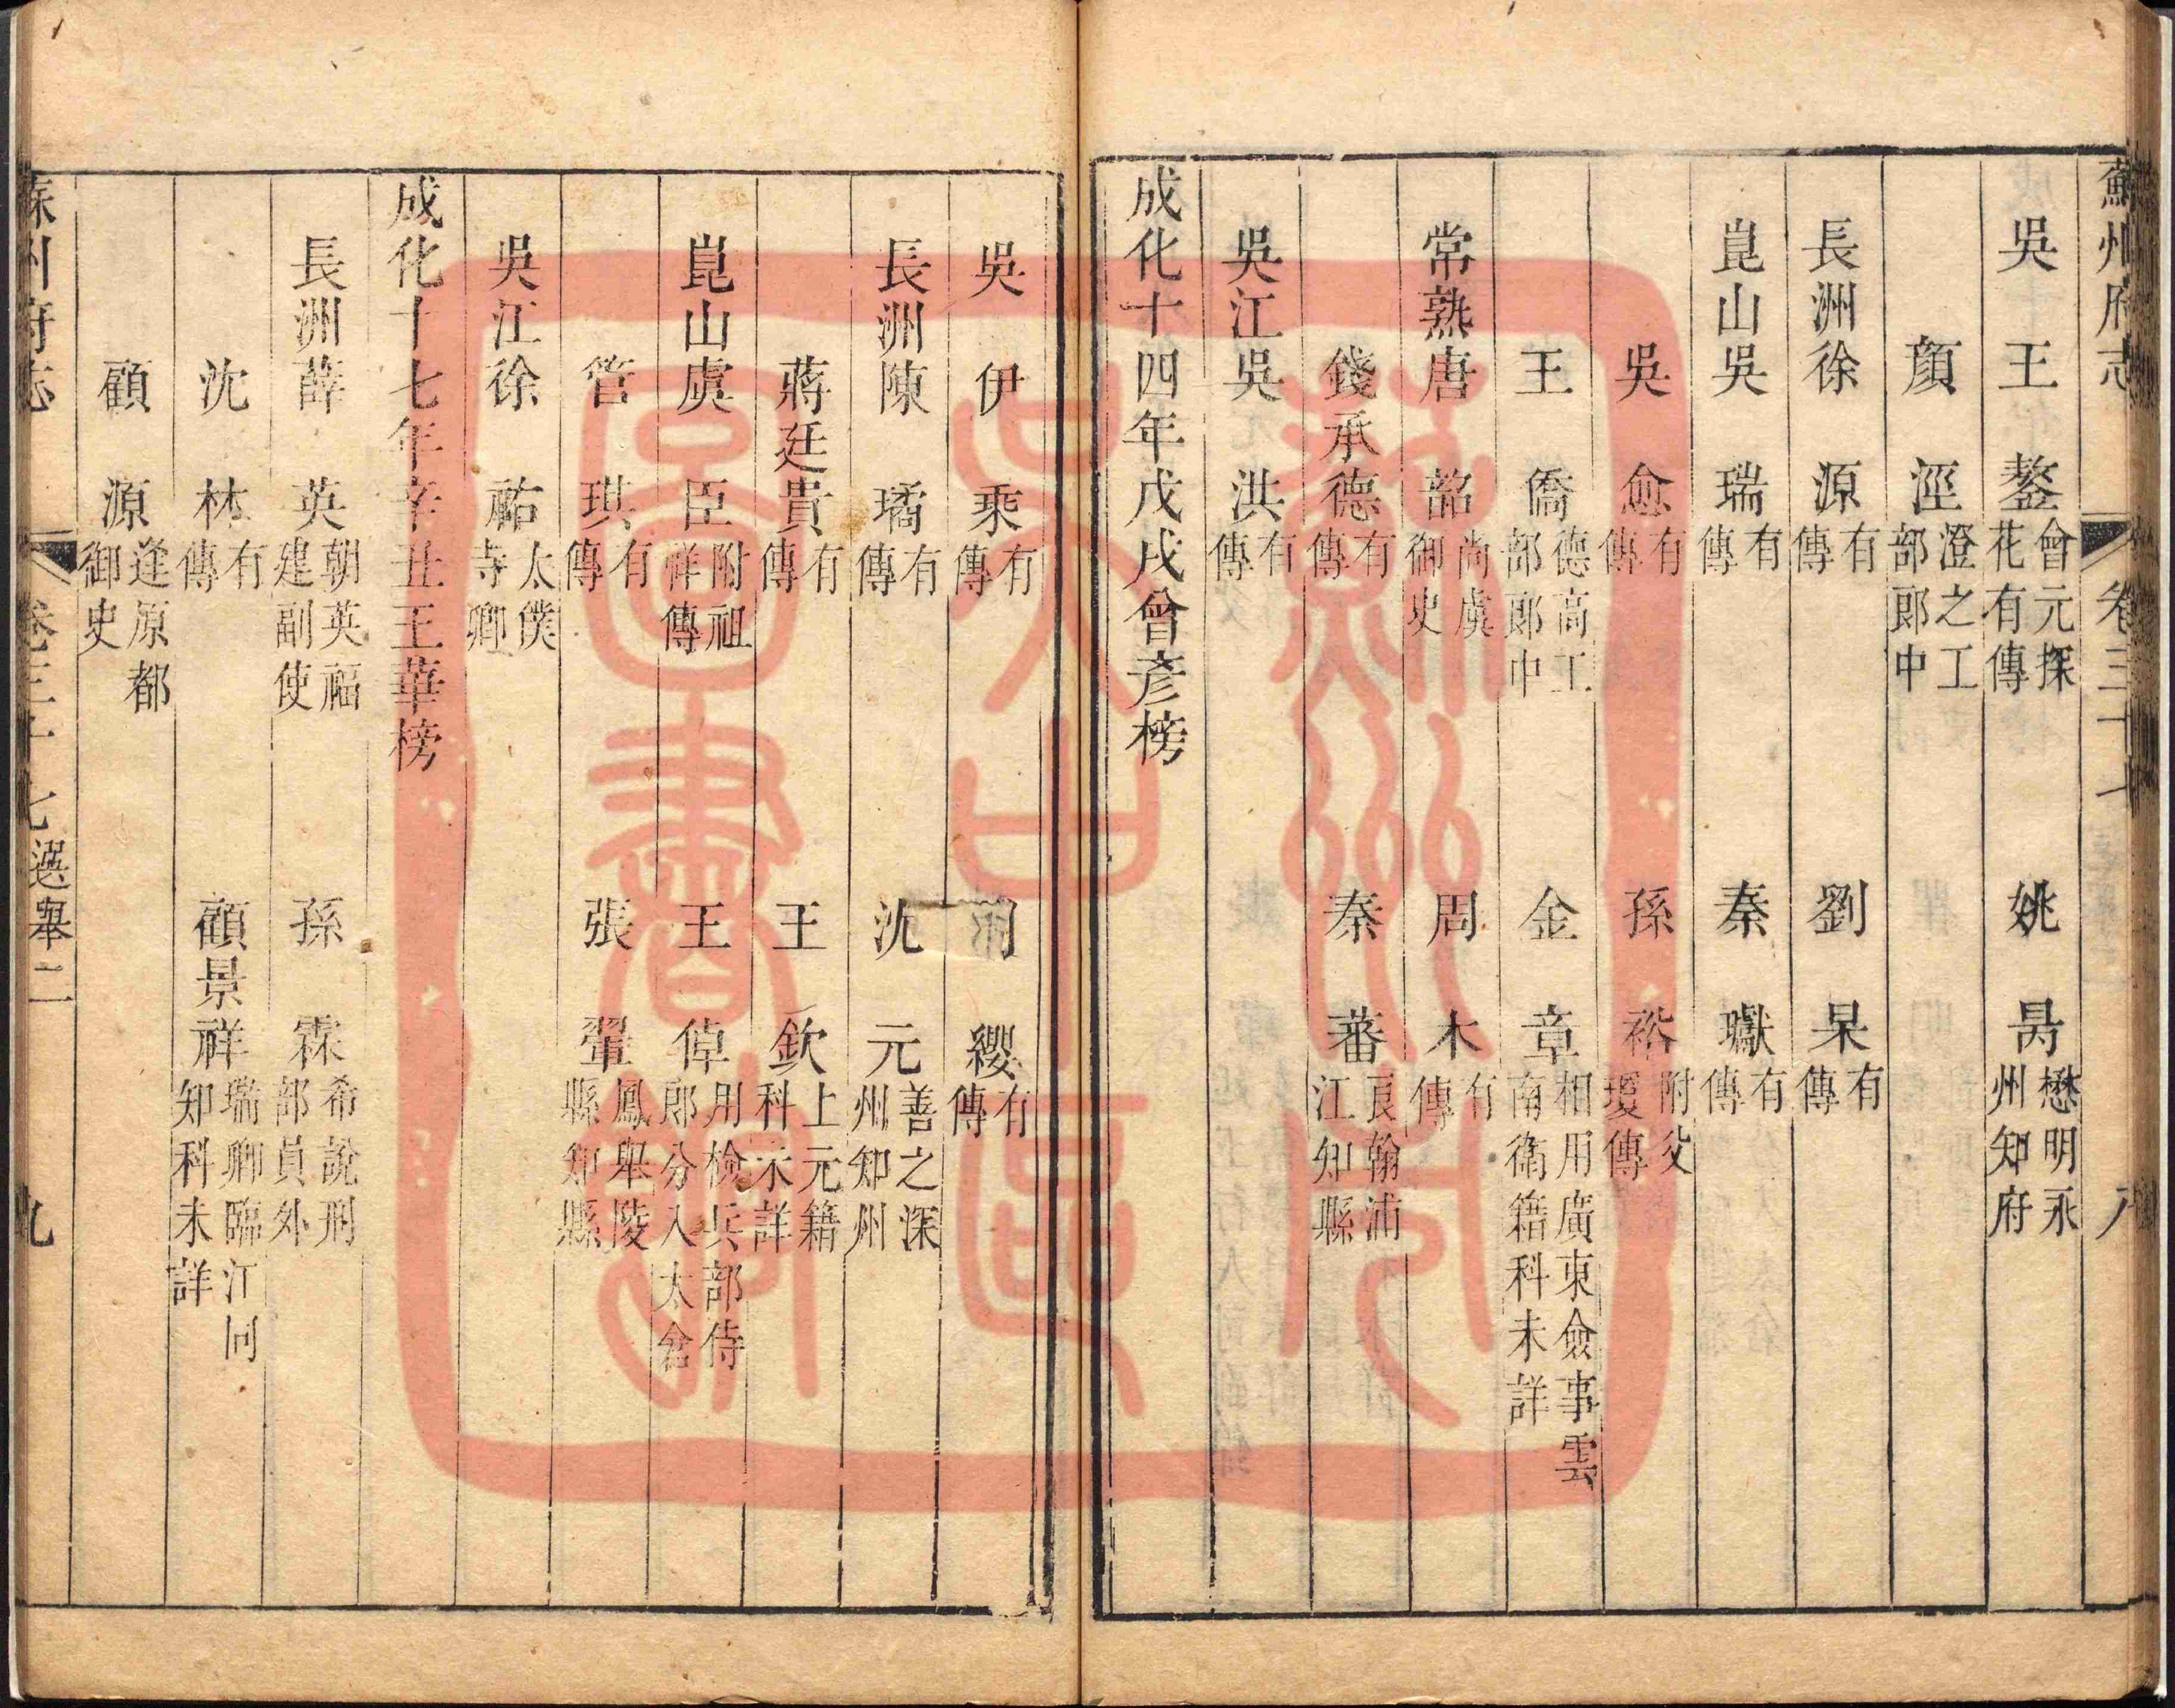 蘇州府志 卷三十七 八
吳 王鏊 會元探花有傳 姚昺 懋明永州知府
顏涇 澄之工部郎中
長洲 徐源 有傳 劉杲 有傳
崑山 吳瑞 有傳 秦瓛 有傳
吳愈 有傳 孫裕 附父瓊傳
王僑 德高工部郎中 金章 相用廣東僉事雲南衛籍科未詳
常熟 唐韶 尚虞御史 周木 有傳
錢承德 有傳 秦蕃 艮翰浦江知縣
吳江 吳洪 有傳
成化十四年戊戌曾彥榜
吳 伊乘 有傳 纓 有傳
長洲 陳璚 有傳 沈元 善之深州知州
蔣廷貴 有傳 王欽 上元籍科未詳
崑山 虞臣 附祖祥傳 王倬 用檢兵部侍郎分入太倉
管琪 有傳 張翬 鳳舉陵縣知縣
吳江 徐祐 太僕寺卿
成化十七年辛丑王華榜
長洲 薛英 朝英福建副使 孫霖 希說刑部員外
沈林 有傳 顧景祥 瑞卿臨江同知科未詳
顧源 逢原都御史
蘇州府志 卷三十七 選舉二 九
蘇州
圖書